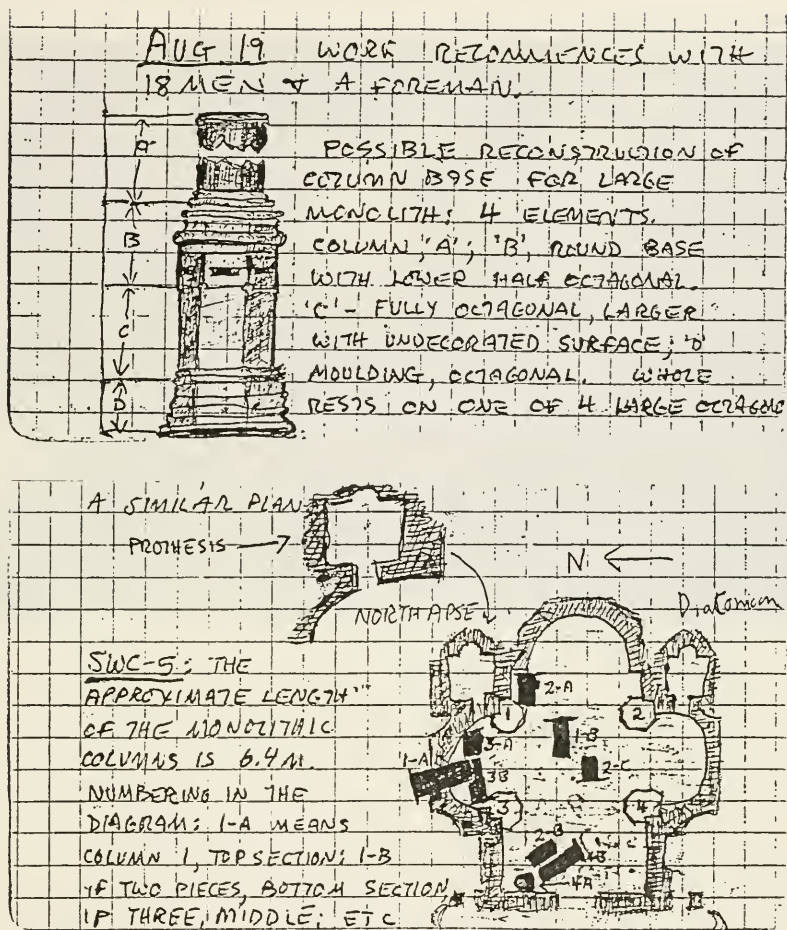 AUG 19 WORK RECOMMENCES WITH
18 MEN & A FOREMAN.
A
B
C
D
POSSIBLE RECONSTRUCTION OF
COLUMN BASE FOR LARGE
MONOLITH: 4 ELEMENTS.
COLUMN, 'A'; 'B', ROUND BASE
WITH LOWER HALF OCTAGONAL.
'C' - FULLY OCTAGONAL, LARGER
WITH UNDECORATED SURFACE; 'D'
MOULDING, OCTAGONAL. WHOLE
RESTS ON ONE OF 4 LARGE OCTAGONO
A SIMILAR PLAN
PROTHESIS
NORTH APSE
N
Diatonicon
SWC-5: THE
APPROXIMATE LENGTH
OF THE MONOLITHIC
COLUMNS IS 6.4 M.
NUMBERING IN THE
DIAGRAM: 1-A MEANS
COLUMN 1, TOP SECTION; 1-B
IF TWO PIECES, BOTTOM SECTION,
IF THREE, MIDDLE; ETC
2-A
1
2
3-A
1-B
1-A
3B
2-C
3
4
2-B
4B
C
4A